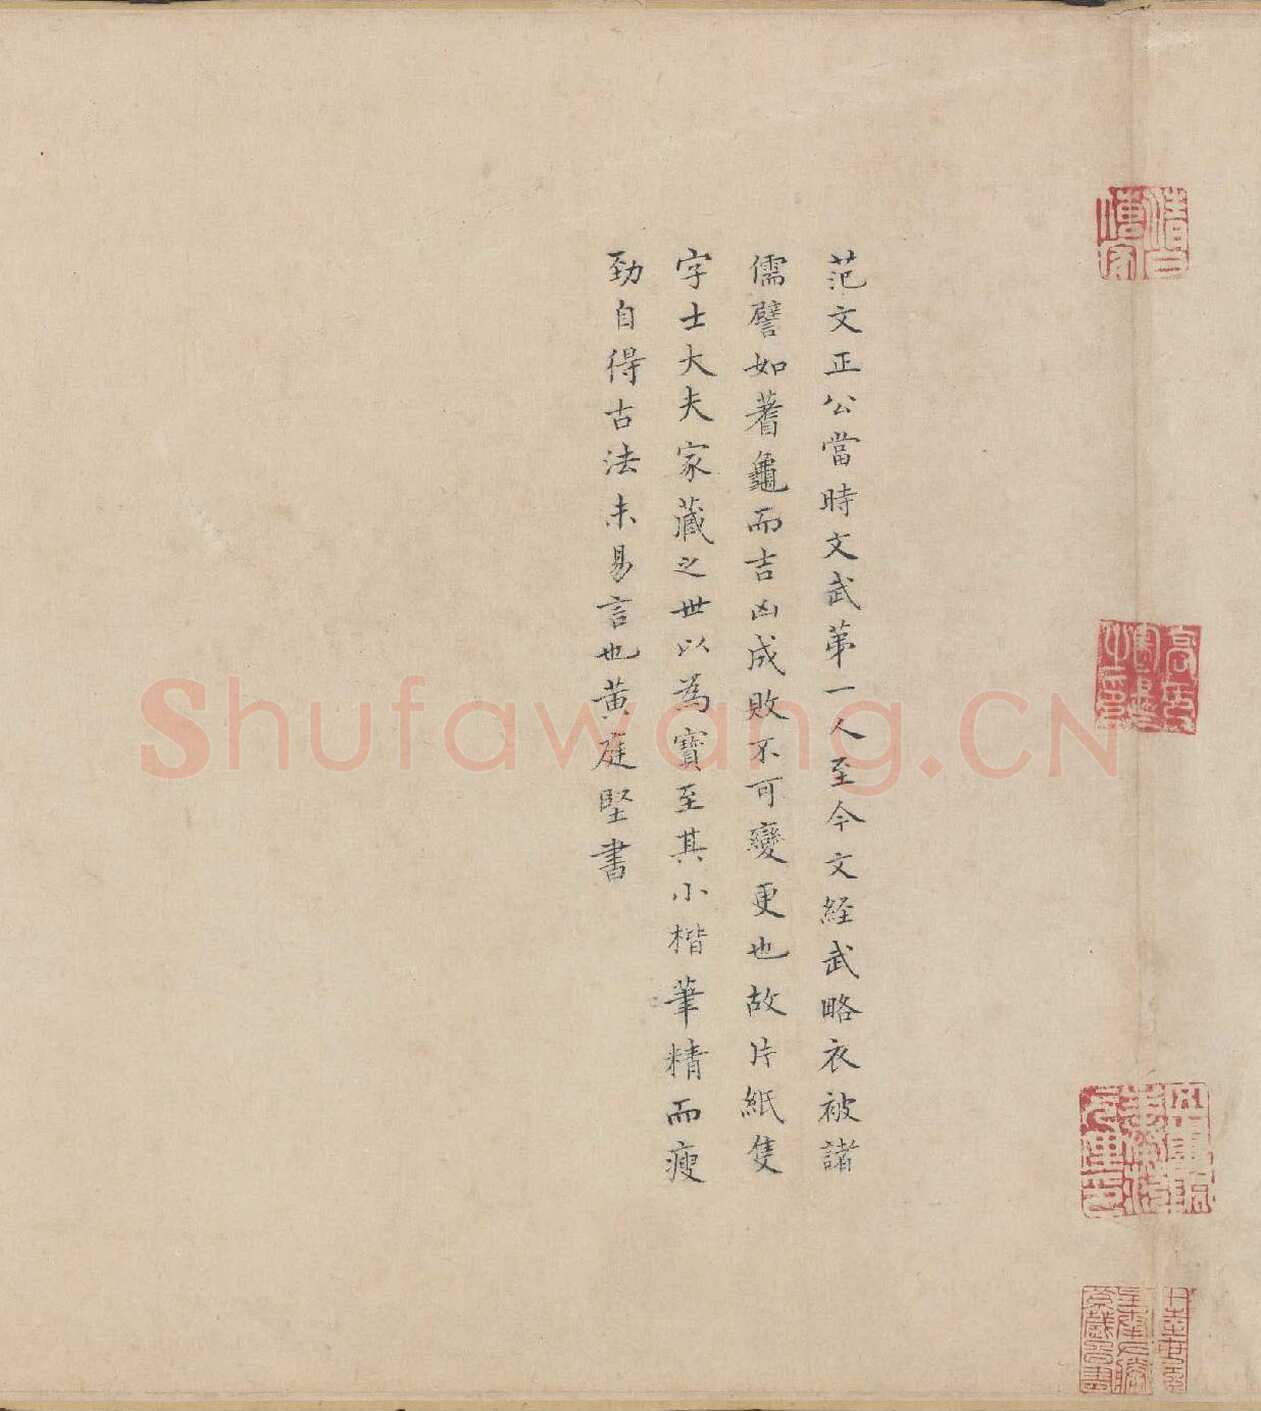 范文正公當時文武第一人至今文經武略衣被諸
儒譬如蓍龜而吉凶成敗不可變更也故片紙隻
字士大夫家藏之世以為寶至其小楷筆精而瘦
勁自得古法未易言也黃庭堅書
Shufawang.CN